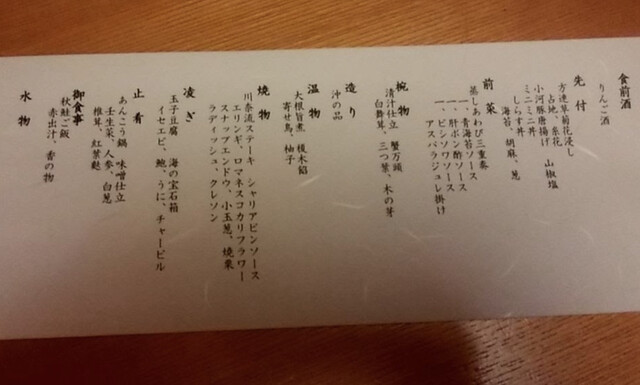 食前酒
りんご酒
先付
方連草菊花浸し
占地、糸花
小河豚唐揚げ 山椒塩
ミニミニ丼
しらす丼
海苔、胡麻、葱
前菜
蒸しあわび三重奏
一、青海苔ソース
一、肝ポン酢ソース
一、ピンソワソース
アスパラジュレ掛け
椀物
清汁仕立 蟹万頭
白舞茸、三つ葉、木の芽
造り
沖の品
温物
大根旨煮 榎木餡
寄せ鳥、柚子
焼物
川奈流ステーキ シャリアピンソース
エリンギ、ロマネスコカリフラワー
スナップエンドウ、小玉葱、焼栗
ラディッシュ、クレソン
凌ぎ
玉子豆腐 海の宝石箱
イセエビ、鮑、うに、チャービル
止肴
あんこう鍋 味噌仕立
壬生菜、人参、白葱
椎茸、紅葉麩
御食事
秋鮭ご飯
赤出汁、香の物
水物